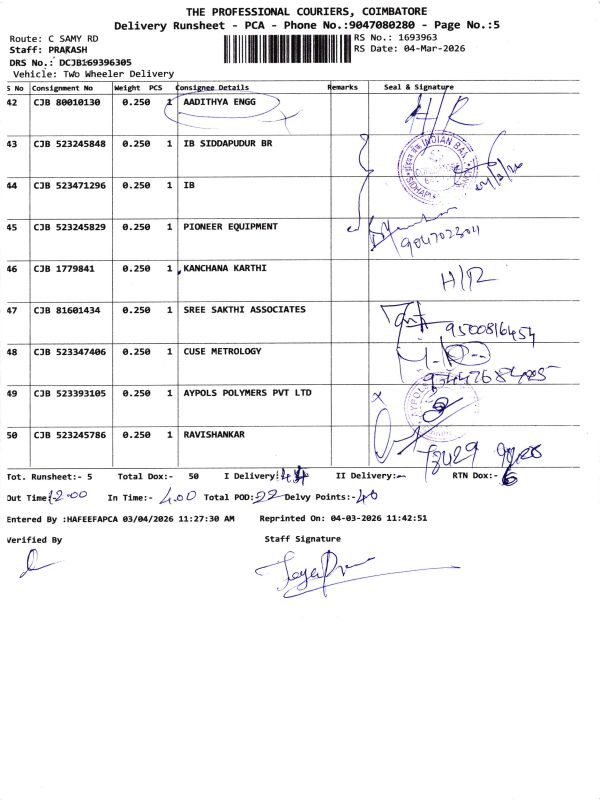 THE PROFESSIONAL COURIERS, COIMBATORE
Delivery Runsheet - PCA - Phone No.:9047080280 - Page No.:5
Route: C SAMY RD RS No.: 1693963
Staff: PRAKASH RS Date: 04-Mar-2026
DRS No.: DCJB169396305
Vehicle: Two Wheeler Delivery
S No Consignment No Weight PCS Consignee Details Remarks Seal & Signature
42 CJB 80010130 0.250 1 AADITHYA ENGG H/R
43 CJB 523245848 0.250 1 IB SIDDAPUDUR BR INDIAN BANK
44 CJB 523471296 0.250 1 IB
45 CJB 523245829 0.250 1 PIONEER EQUIPMENT
46 CJB 1779841 0.250 1 KANCHANA KARTHI H/R
47 CJB 81601434 0.250 1 SREE SAKTHI ASSOCIATES 9500816454
48 CJB 523347406 0.250 1 CUSE METROLOGY
49 CJB 523393105 0.250 1 AYPOLS POLYMERS PVT LTD AYPOLS
50 CJB 523245786 0.250 1 RAVISHANKAR
Tot. Runsheet:- 5 Total Dox:- 50 I Delivery:- II Delivery:- RTN Dox:- 6
Out Time:12.00 In Time:- 4.00 Total POD:22 Delvy Points:-40
Entered By :HAFEEFAPCA 03/04/2026 11:27:30 AM Reprinted On: 04-03-2026 11:42:51
Verified By Staff Signature